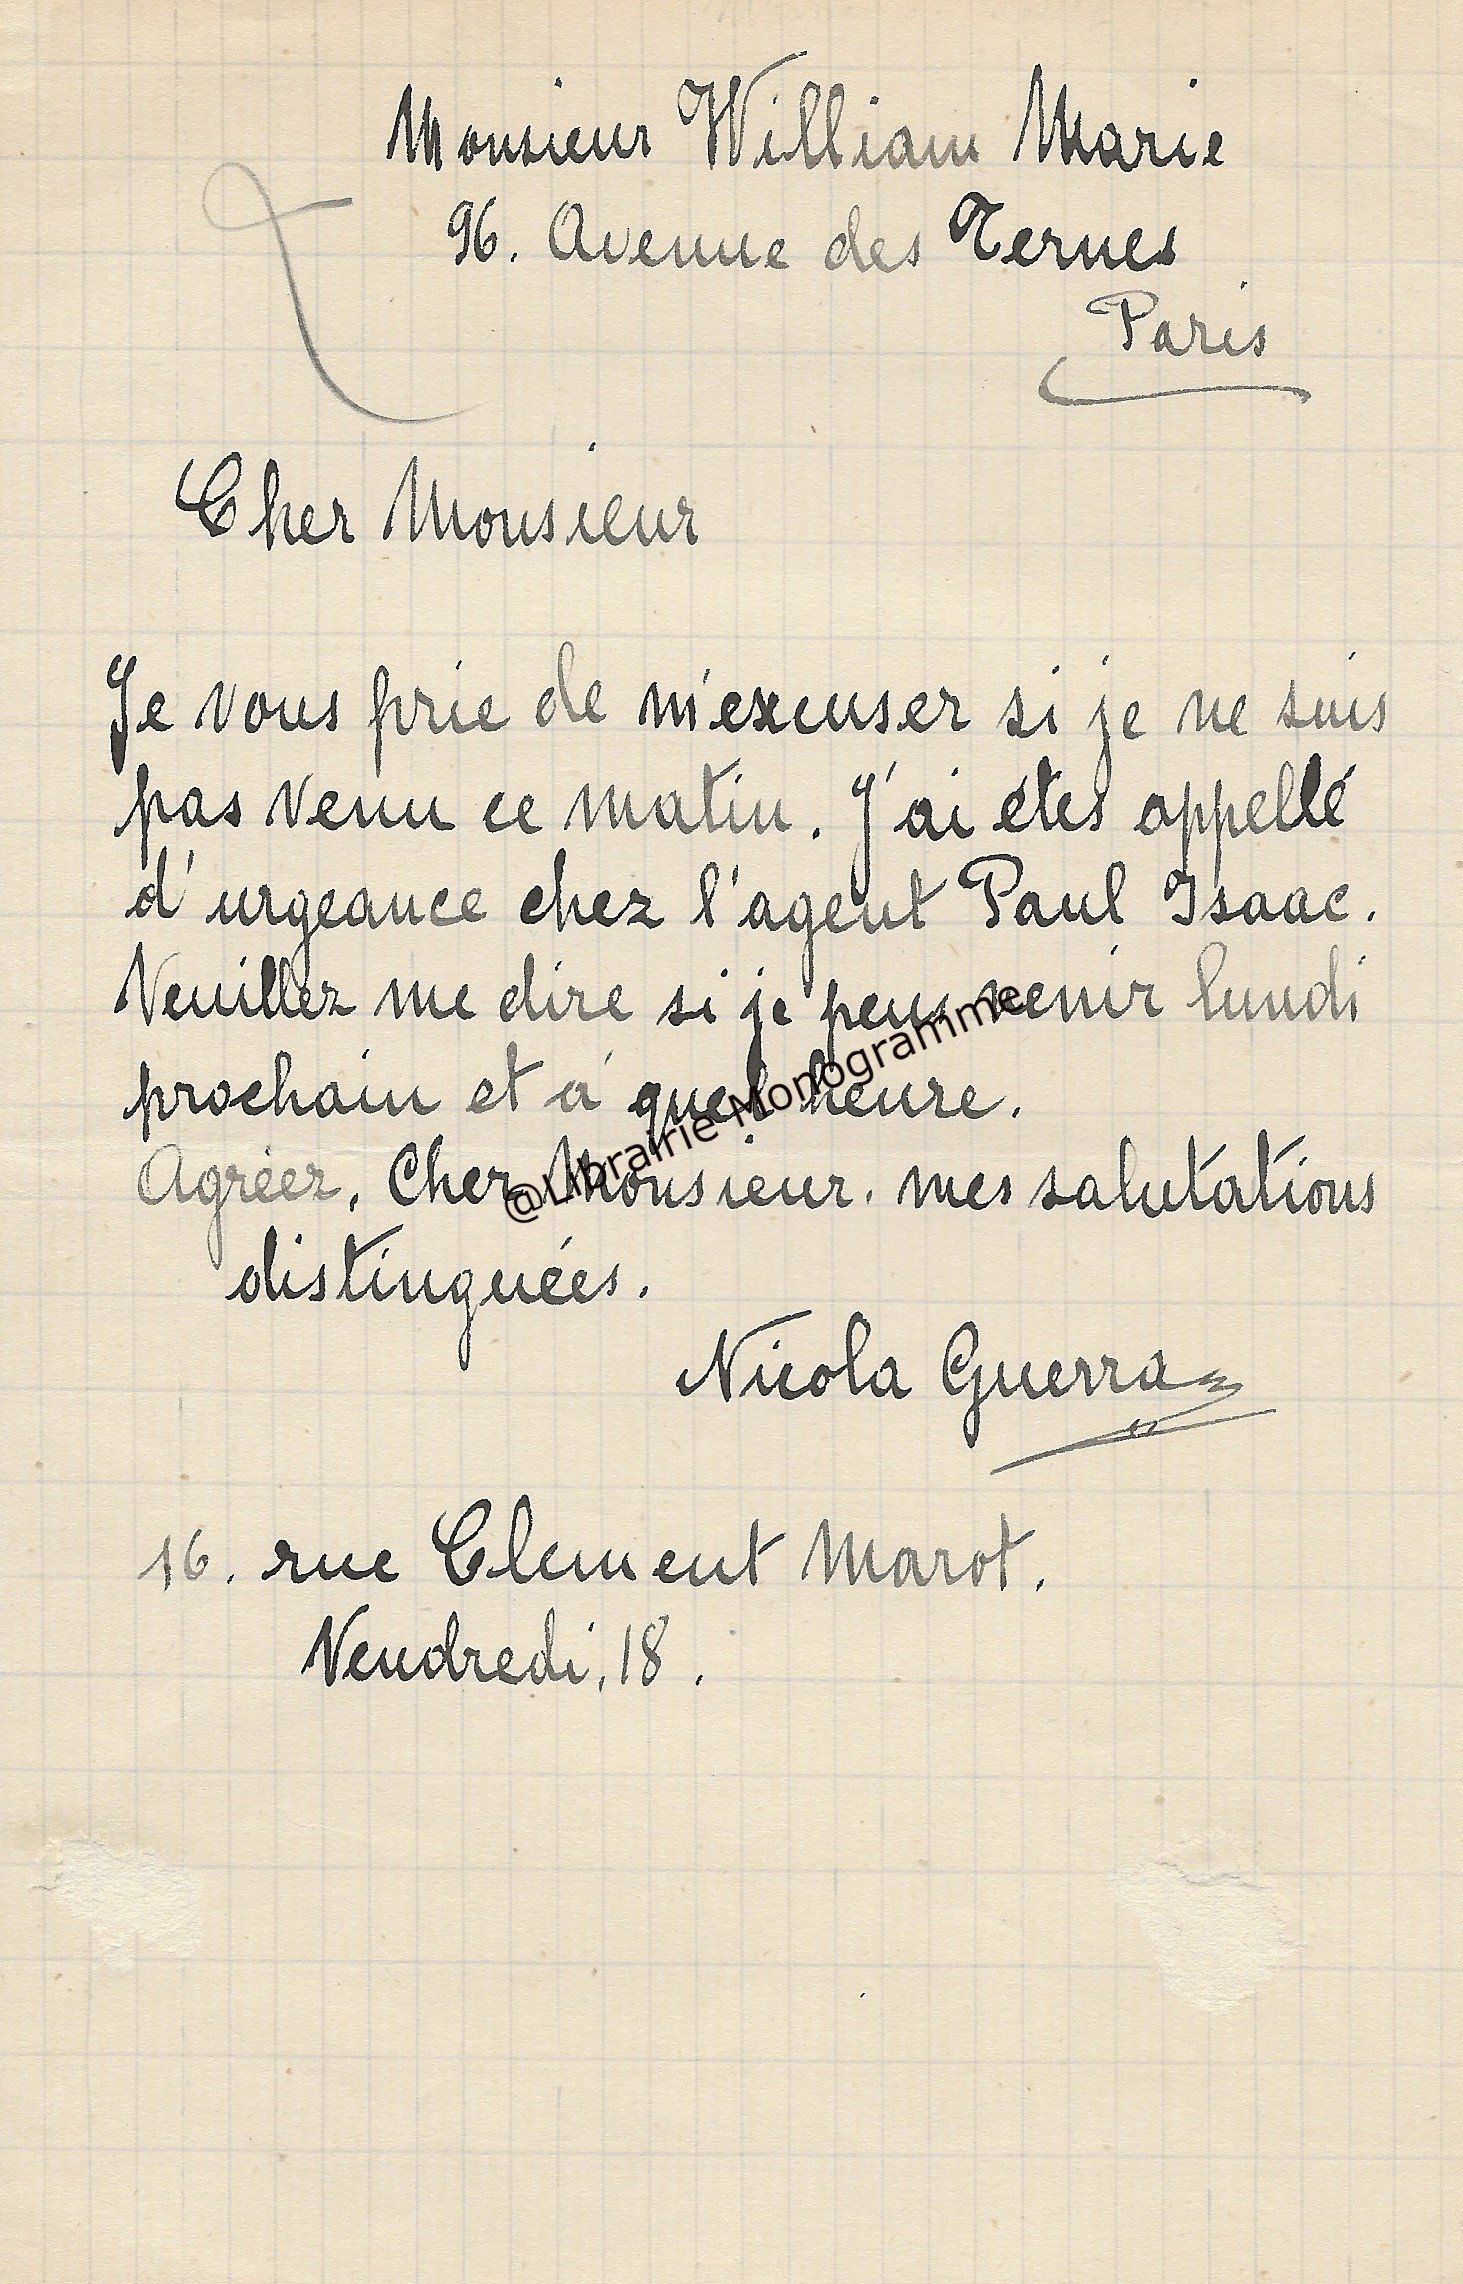 Monsieur William Marie
96. Avenue des Ternes
Paris
Cher Monsieur
Je vous prie de m'excuser si je ne suis
pas venu ce matin. J'ai étés appellé
d'urgeance chez l'agent Paul Isaac.
Veuillez me dire si je peus venir lundi
prochain et a' quel heure.
Agréez, Cher Monsieur. mes salutations
distinguées.
Nicola Guerra
16. rue Clement Marot.
Vendredi, 18.
@Librairie Monogramme